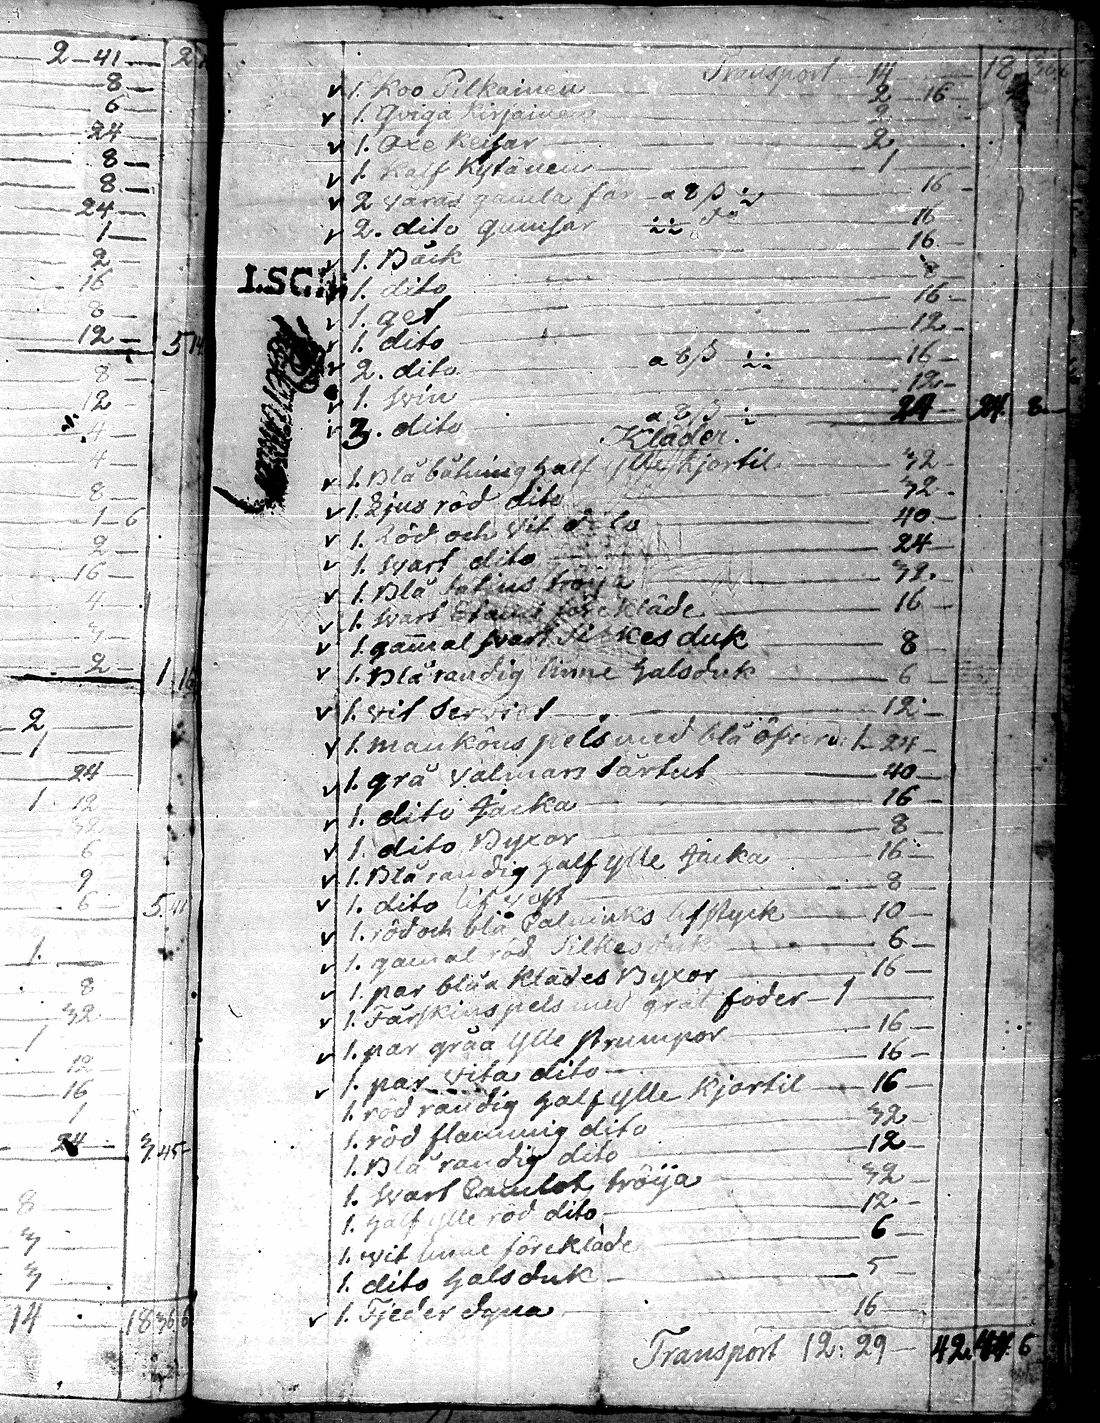 2 - 41
8
6
24
8
8
24
1
2
16
8
12 5
8
12
4
4
8
1 - 6
2
16
4
3
2 1
2
1
24
1 12
32
6
9
6 5
1.
8
32
1
12
16
1
24 3.45
8
3
3
14 18 36 6
Transport 14 18
v 1. Koo Pilkainen 2 16
v 1. Qviga Kirjainen 2
v 1. Oxe Keisar 2
v 1. Kalf Kytänen 1
v 2 gamla får a 8 β 16
v 2. dito gumsar 16
v 1. Bäck 16
v 1. dito 8
v 1. get 16
v 1. dito 12
v 2. dito a 8 β 16
v 1. svin 12
v 3. dito a 8 β 24 8
Kläder.
v 1. Blå half ylle kjortil 32
v 1. Ljus röd dito 32
v 1. Röd och vit dito 40
v 1. svart dito 24
v 1. Blå tröija 32
v 1. svart förekläde 16
v 1. gammal svart Silkes duk 8
v 1. Blå randig linne halsduk 6
v 1. vit Serviet 12
v 1. manköns pels med blå 1 - 24
v 1. grå valmars Sartut 40
v 1. dito Jacka 16
v 1. dito Byxor 8
v 1. Blå randig half ylle Jacka 16
v 1. dito lif väst 8
v 1. röd och blå lifstyck 10
v 1. gamal röd Silkes duk 6
v 1. par blåa Klädes Byxor 16
v 1. Fårskins pels med gråt foder 1
v 1. par gråa ylle strumpor 16
v 1. par vita dito 16
1. röd randig half ylle kjortil 16
1. röd flammig dito 32
1. Blå randig dito 12
1. svart Camlot tröija 32
1. half ylle röd dito 12
1. vit linne förekläde 6
1. dito halsduk 5
v 1. Fjeder dyna 16
Transport 12: 29 42. 44. 6